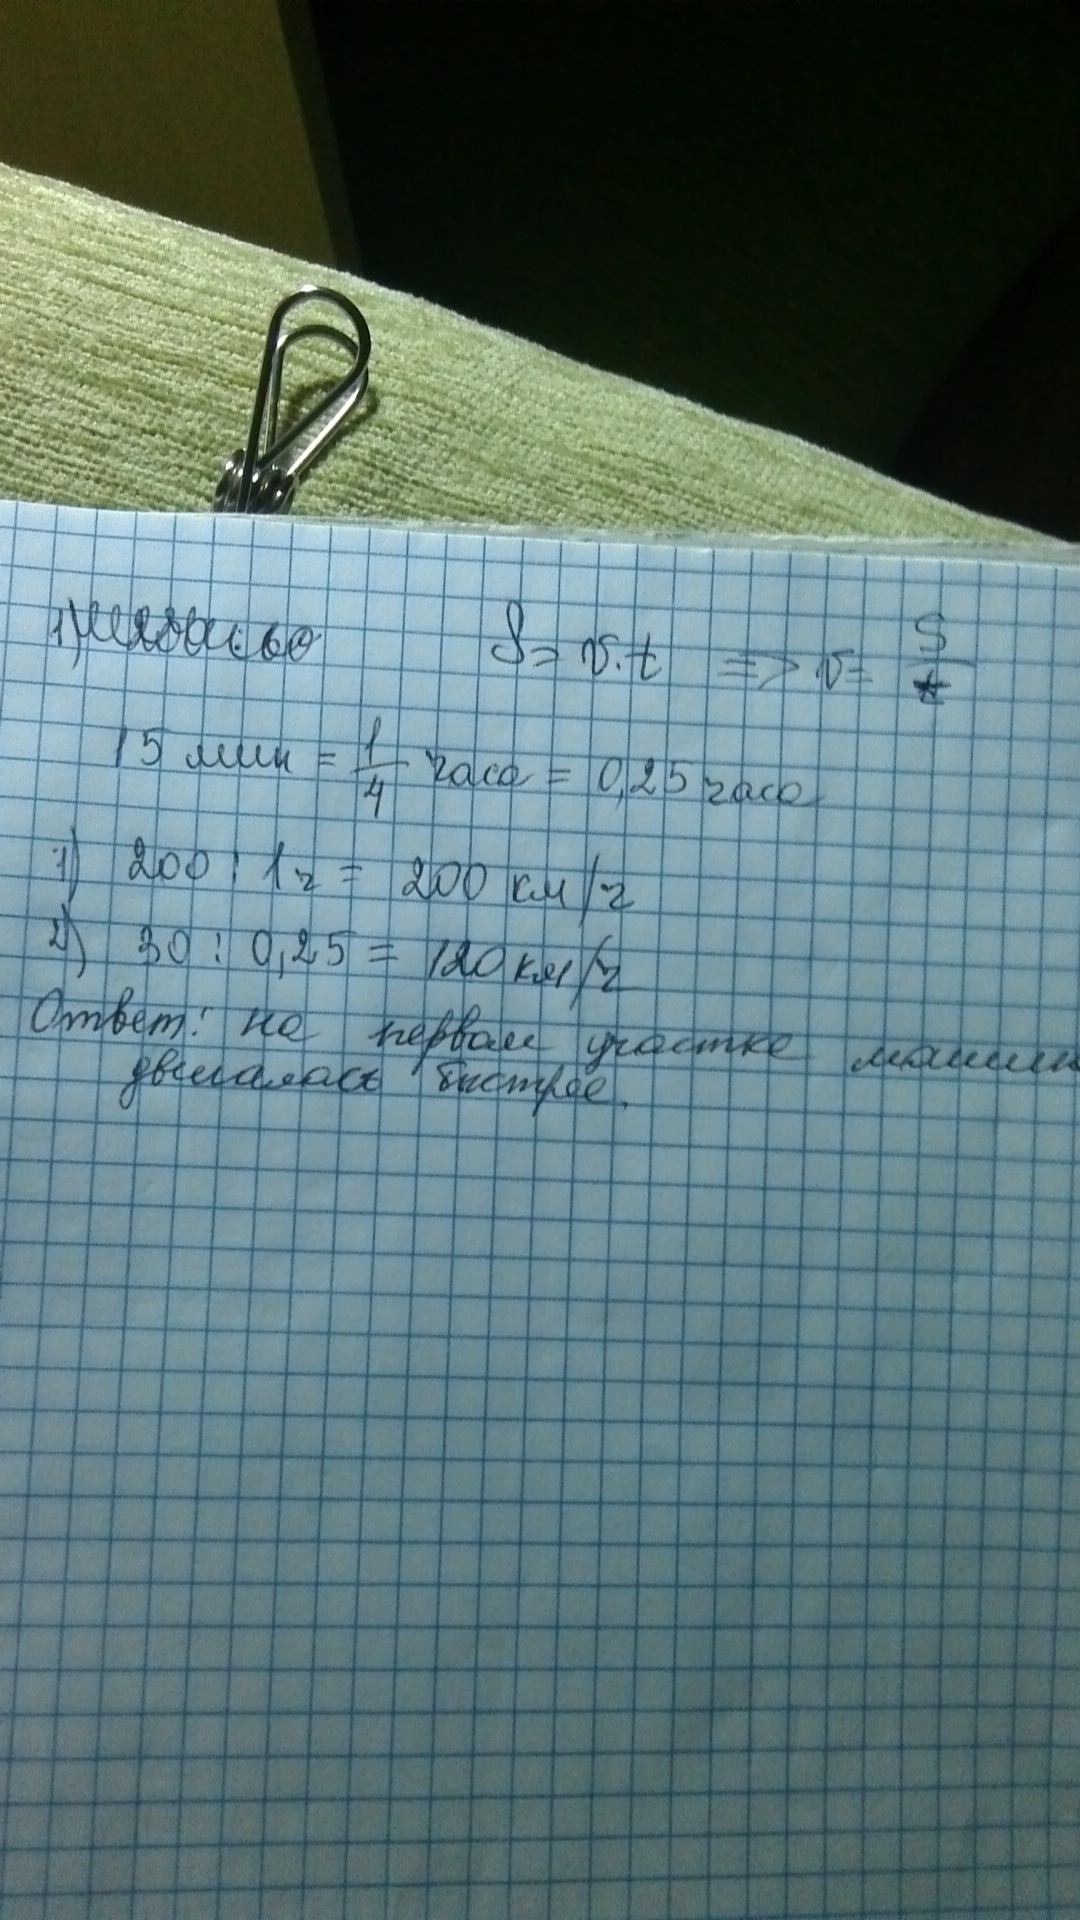 1) S = v · t => v = S/t
15 мин = 1/4 часа = 0,25 часа
1) 200 : 1ч = 200 км/ч
2) 30 : 0,25 = 120 км/ч
Ответ: на первом участке машин
двигалась быстрее.